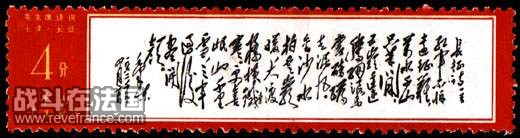 毛主席诗词
七律·长征
4分
长征诗一首
红军不怕
远征难
万水千山
只等闲
五岭逶迤
腾细浪
乌蒙磅礴
走泥丸
金沙水
拍云崖
暖大渡
桥横铁索
寒更喜
岷山千里
雪三军
过后
尽开
颜
毛泽东
战斗在法国
www.warinfrance.com